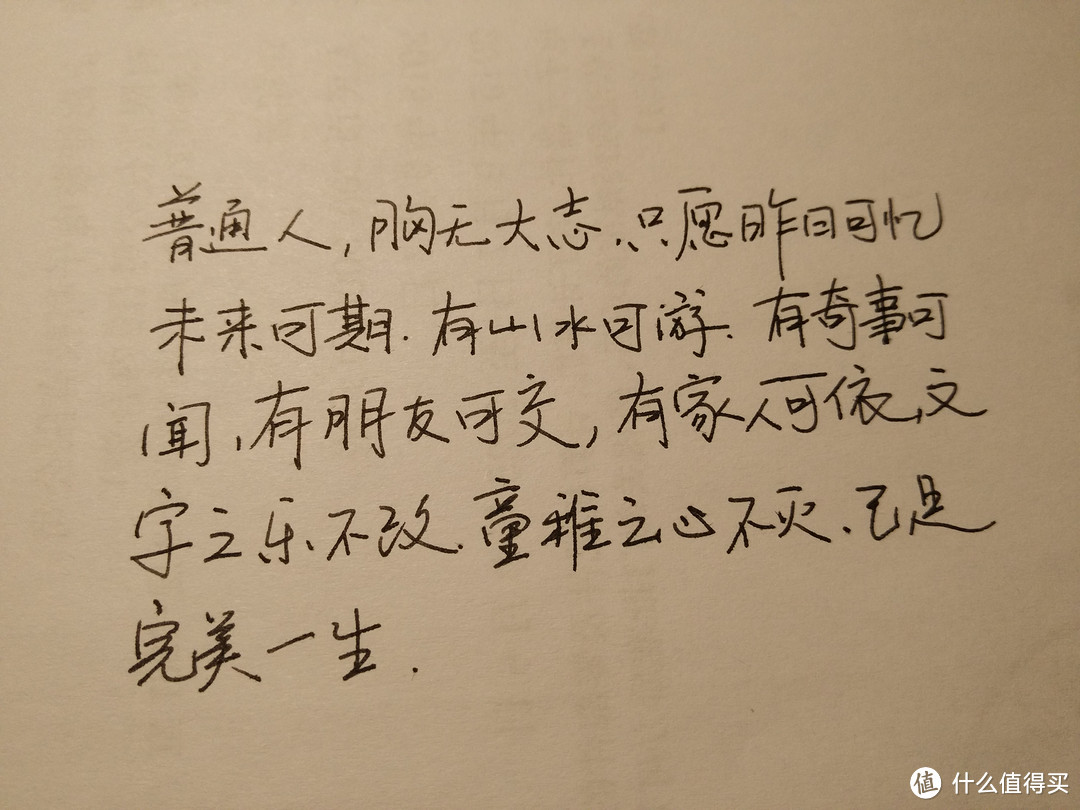 普通人,胸无大志.只愿昨日可忆
未来可期.有山水可游.有奇事可
闻,有朋友可交,有家人可依,文
字之乐不改.童稚之心不灭.已足
完美一生.
值 什么值得买